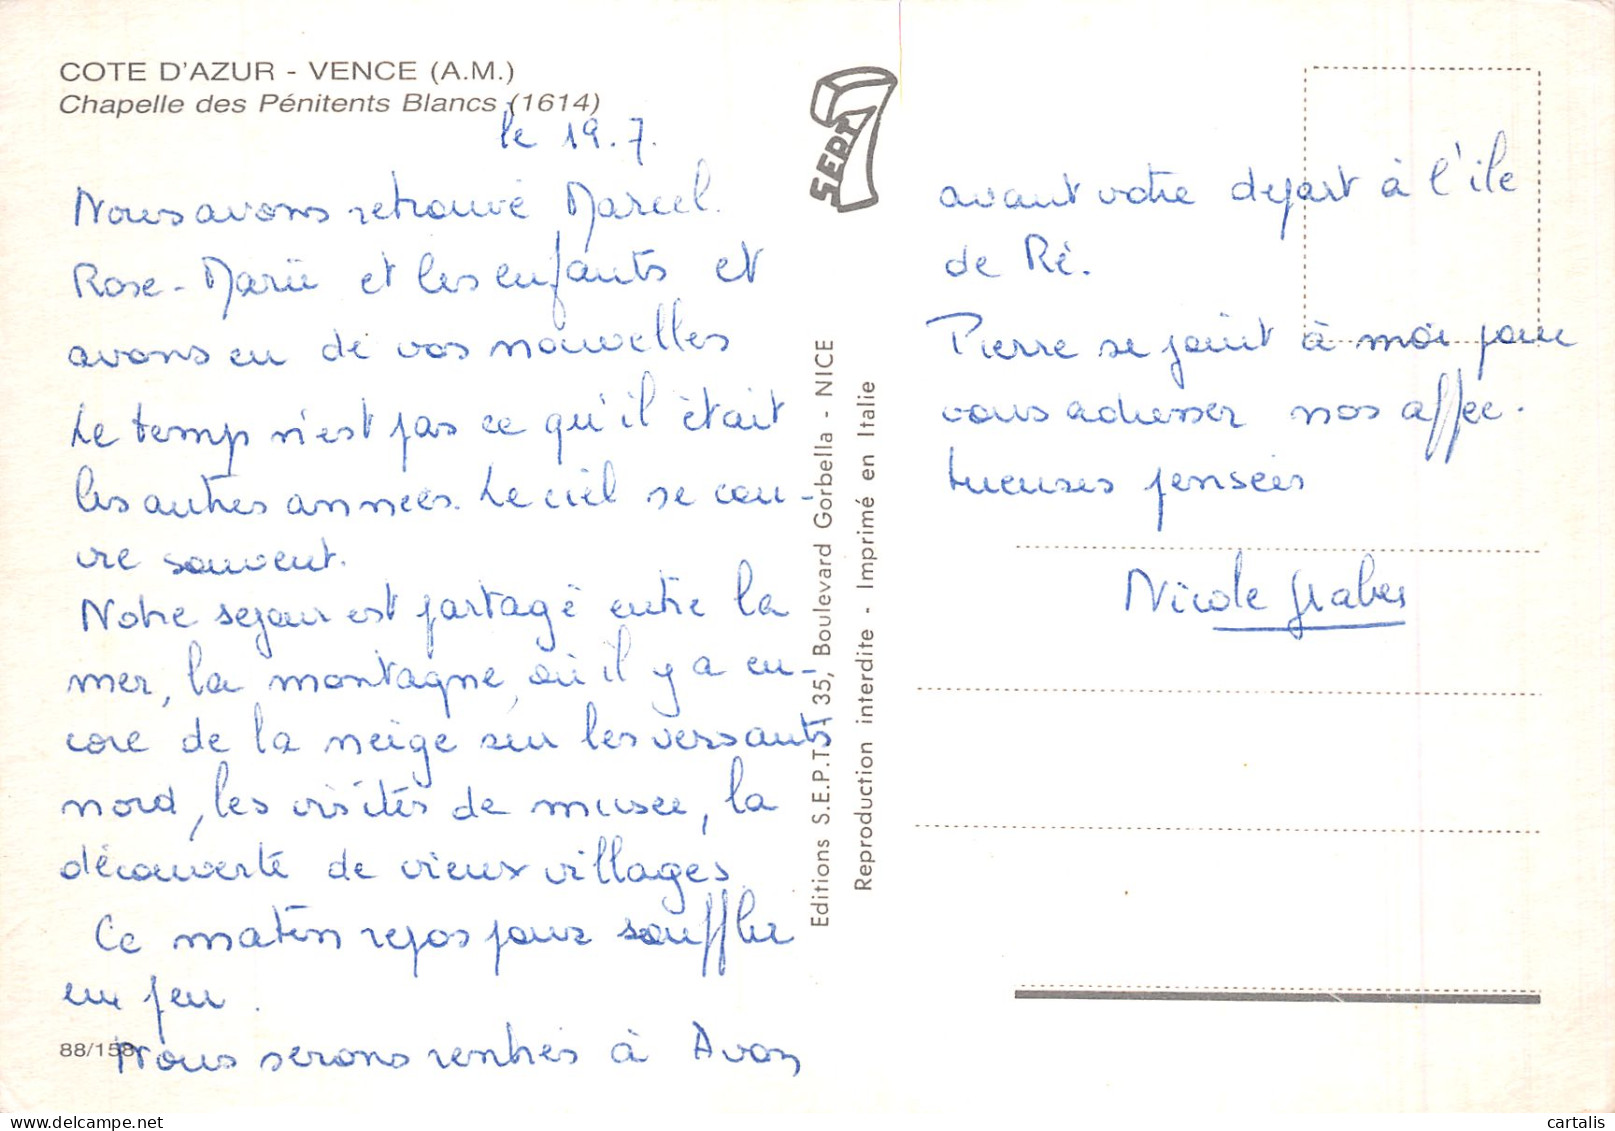 COTE D'AZUR - VENCE (A.M.)
Chapelle des Pénitents Blancs (1614)
le 19.7.
Nous avons retrouvé Marcel.
Rose-Marie et les enfants et
avons eu de vos nouvelles
Le temps n'est pas ce qu'il était
les autres années. Le ciel se cou-
vre souvent.
Notre séjour est partagé entre la
mer, la montagne, où il y a en-
core de la neige sur les versants
nord, les visites de musée, la
découverte de vieux villages
Ce matin repos pour souffler
un peu.
Nous serons rentrés à Avon
88/158
SEPT 7
Editions S.E.P.T. - 35, Boulevard Gorbella - NICE
Reproduction interdite - Imprimé en Italie
avant votre départ à l'île
de Ré.
Pierre se joint à moi pour
vous adresser nos affec-
tueuses pensées
Nicole
cartalis